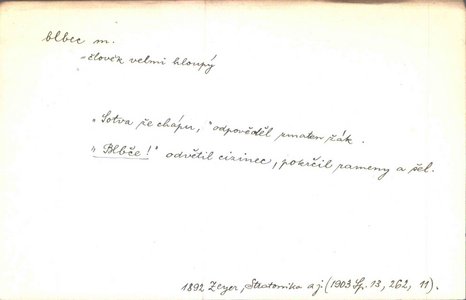 blbec m.
- člověk velmi hloupý
„Sotva že chápu," odpověděl zmaten žák.
„Blbče!" odvětil cizinec, pokrčil rameny a šel.
1892 Zeyer, Stratonika a j. (1903 Sp. 13, 262, 11).